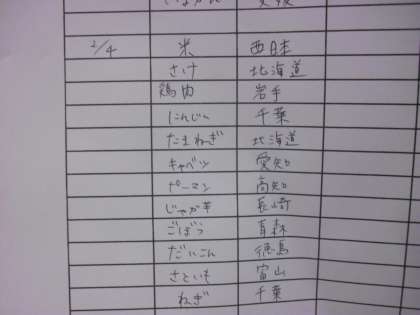 2/4 米 西日本
さけ 北海道
鶏肉 岩手
にんじん 千葉
たまねぎ 北海道
キャベツ 愛知
ピーマン 高知
じゃが芋 長崎
ごぼう 青森
だいこん 徳島
さといも 富山
ねぎ 千葉